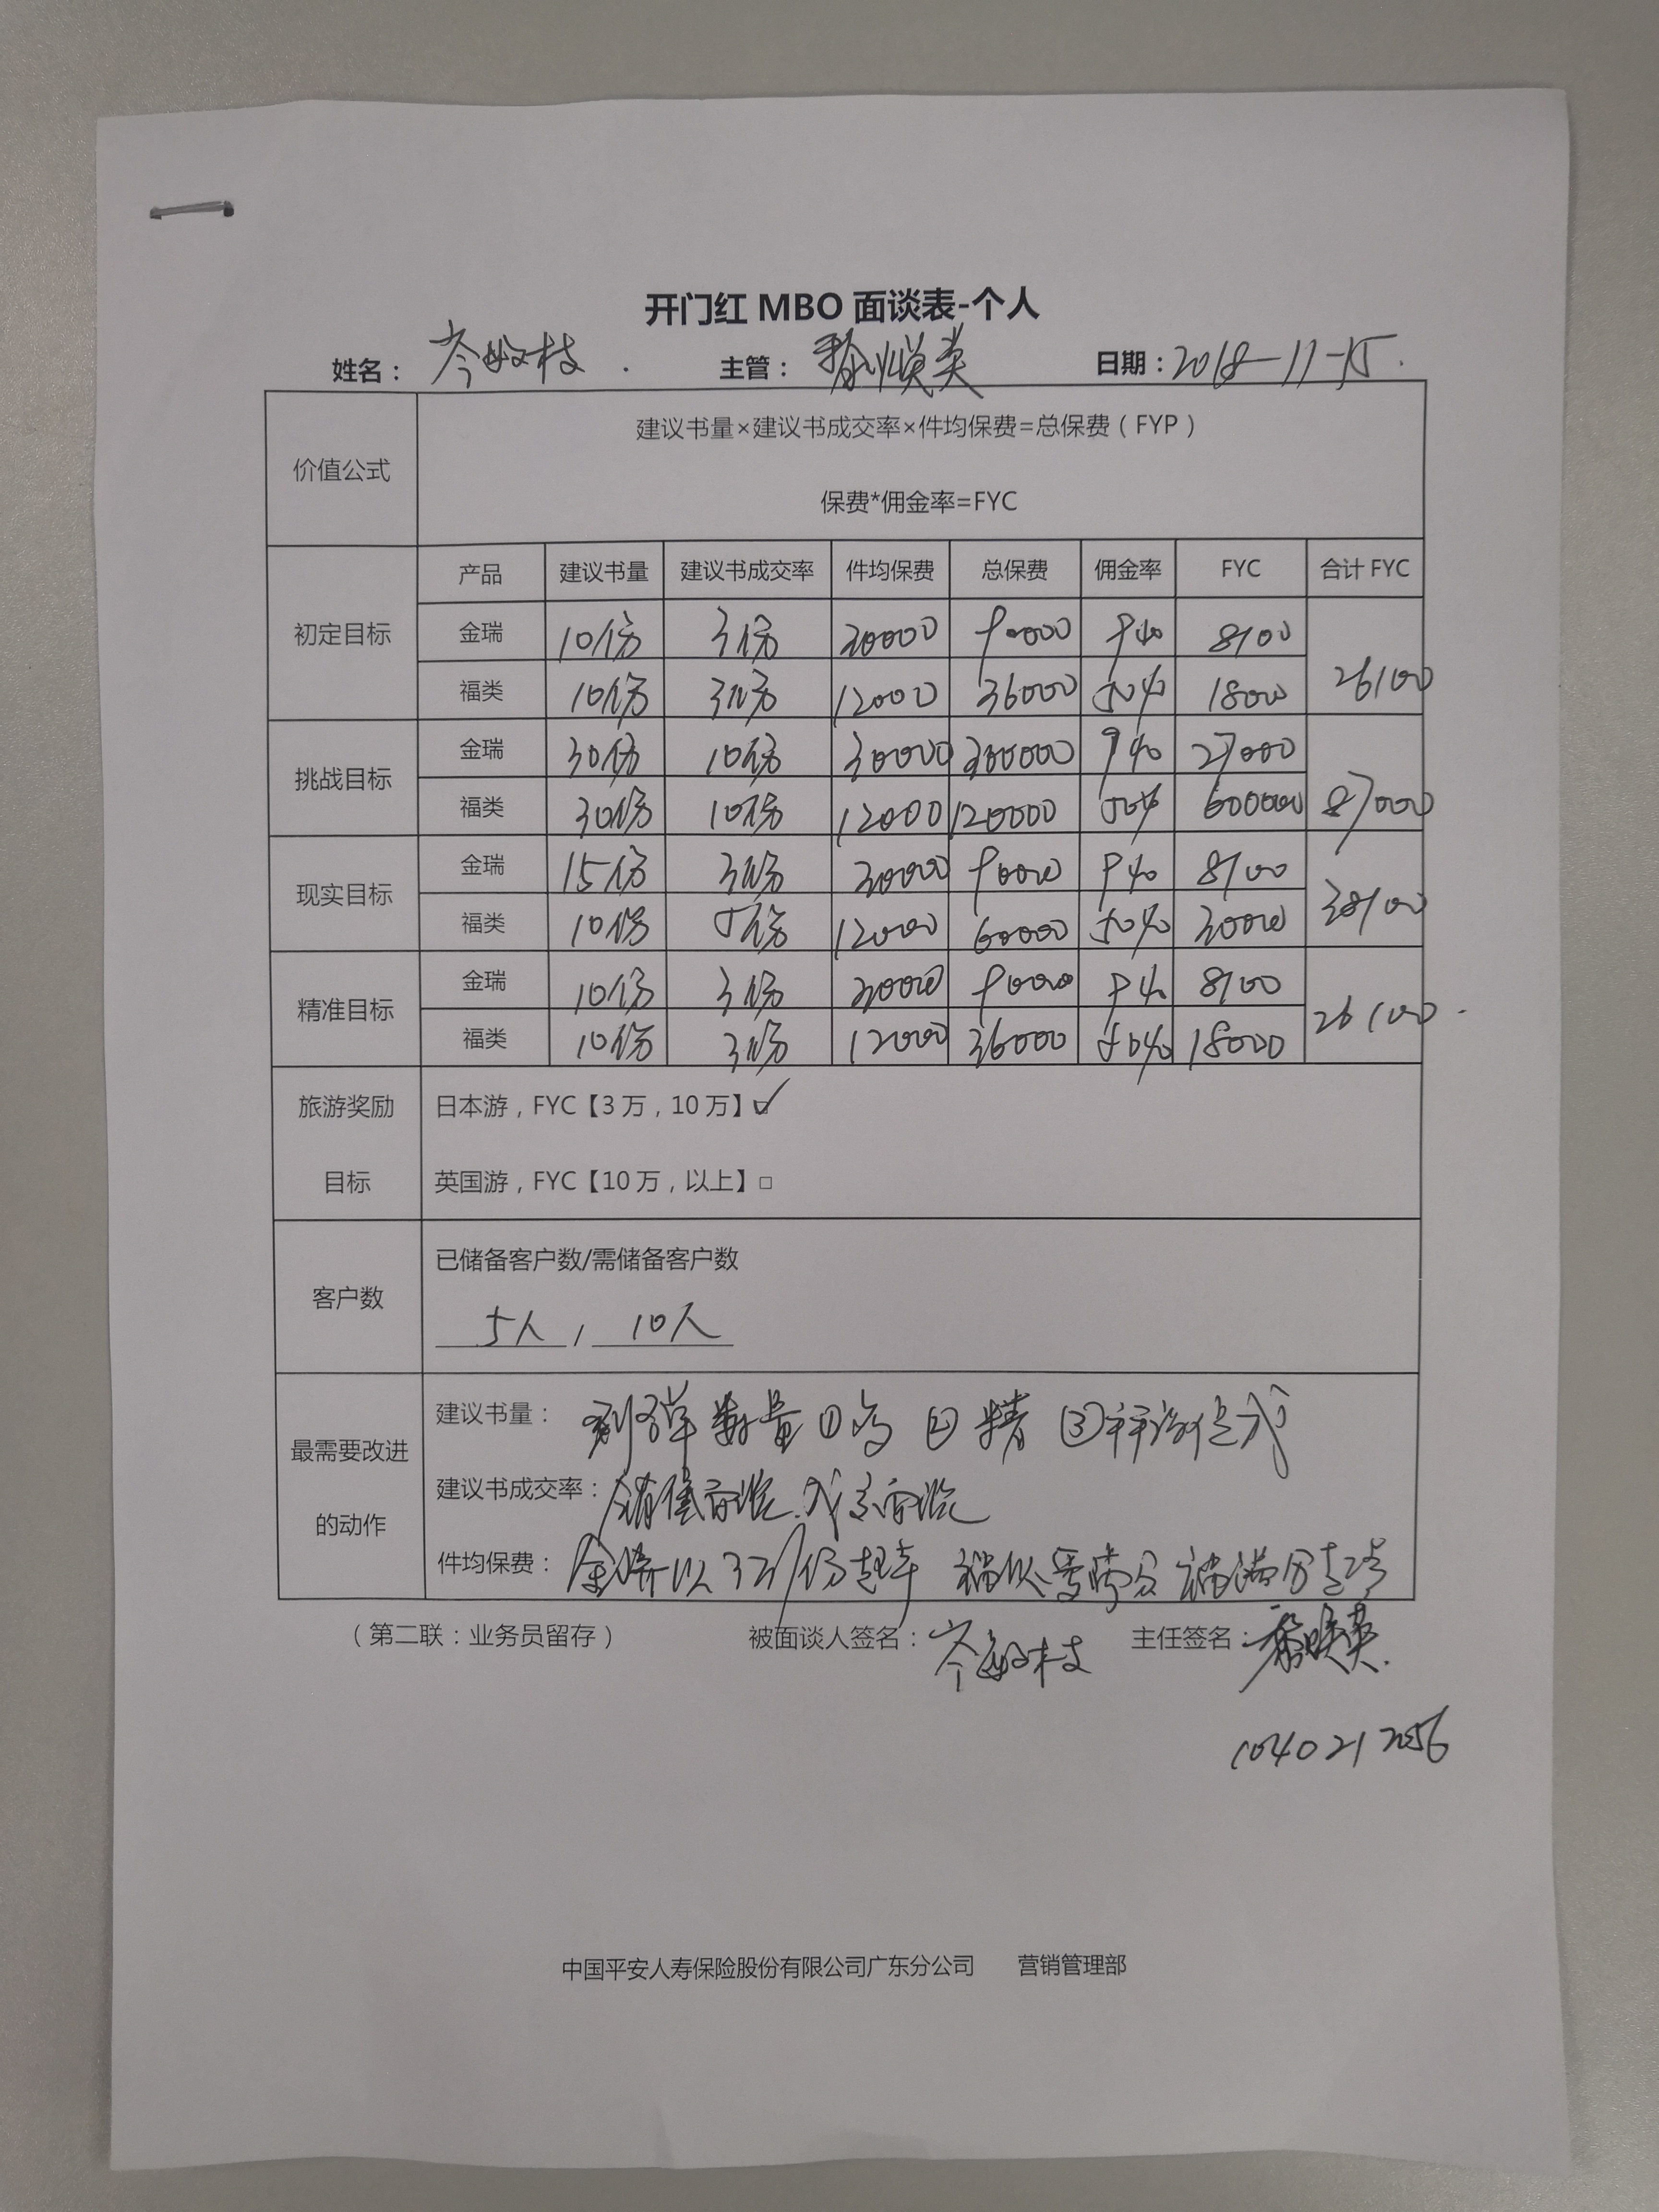 开门红 MBO 面谈表-个人
姓名：岑敏枝 主管： 日期：2018-11-15.
价值公式
建议书量×建议书成交率×件均保费=总保费（FYP）
保费*佣金率=FYC
产品 建议书量 建议书成交率 件均保费 总保费 佣金率 FYC 合计 FYC
初定目标
金瑞 10份 3份 30000 90000 9% 8100
福类 10份 3份 12000 36000 50% 18000 26100
挑战目标
金瑞 30份 10份 30000 300000 9% 27000
福类 30份 10份 12000 120000 50% 600000 87000
现实目标
金瑞 15份 3份 30000 90000 9% 8100
福类 10份 5份 12000 60000 50% 30000 38100
精准目标
金瑞 10份 3份 30000 90000 9% 8100
福类 10份 3份 12000 36000 50% 18000 26100.
旅游奖励
目标
日本游，FYC【3 万，10 万】☑
英国游，FYC【10 万，以上】□
客户数
已储备客户数/需储备客户数
5人 / 10人
最需要改进
的动作
建议书量： 数量 ① ② 精 ③
建议书成交率：
件均保费： 以3万/份起
（第二联：业务员留存） 被面谈人签名：岑敏枝 主任签名：
1040212056
中国平安人寿保险股份有限公司广东分公司 营销管理部